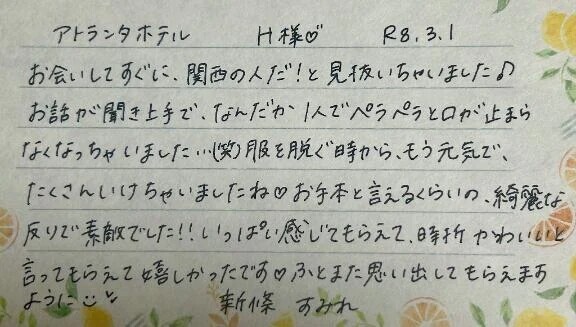 アトランタホテル　H様♡　R8.3.1
お会いしてすぐに、関西の人だ!と見抜いちゃいました♪
お話が聞き上手で、なんだか1人でペラペラと口が止まら
なくなっちゃいました…(笑)服を脱ぐ時から、もう元気で、
たくさんいけちゃいましたね♡お手本と言えるくらいの、綺麗な
反りで素敵でした!!いっぱい感じてもらえて、時折かわいいと
言ってもらえて嬉しかったです♡ふとまた思い出してもらえます
ように☺
新條　すみれ